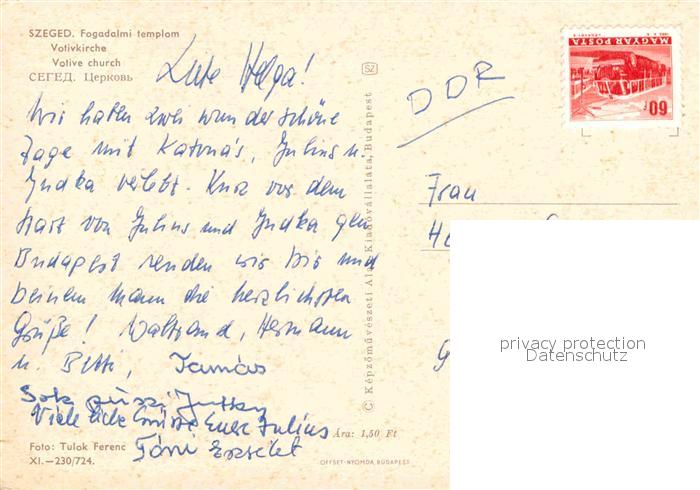 SZEGED. Fogadalmi templom
Votivkirche
Votive church
СЕГЕД. Церковь
Liebe Helga!
Wir haben zwei wunderschöne
Tage mit Katona's, Julius u.
Judka verlebt. Kurz vor dem
Start von Julius und Judka gen
Budapest senden wir Dir und
Deinem Mann die herzlichsten
Grüße! Waltraud, Hermann
u. Betti, Tamás
Sok puszi Jutka
Viele liebe Grüsse Euer Julius
Tóni Erzsébet
Foto: Tulok Ferenc
XI.—230/724.
Ára: 1,50 Ft
OFFSET-NYOMDA, BUDAPEST
© Képzőművészeti Alap Kiadóvállalata, Budapest
SZ
DDR
MAGYAR POSTA
60
Frau
privacy protection
Datenschutz